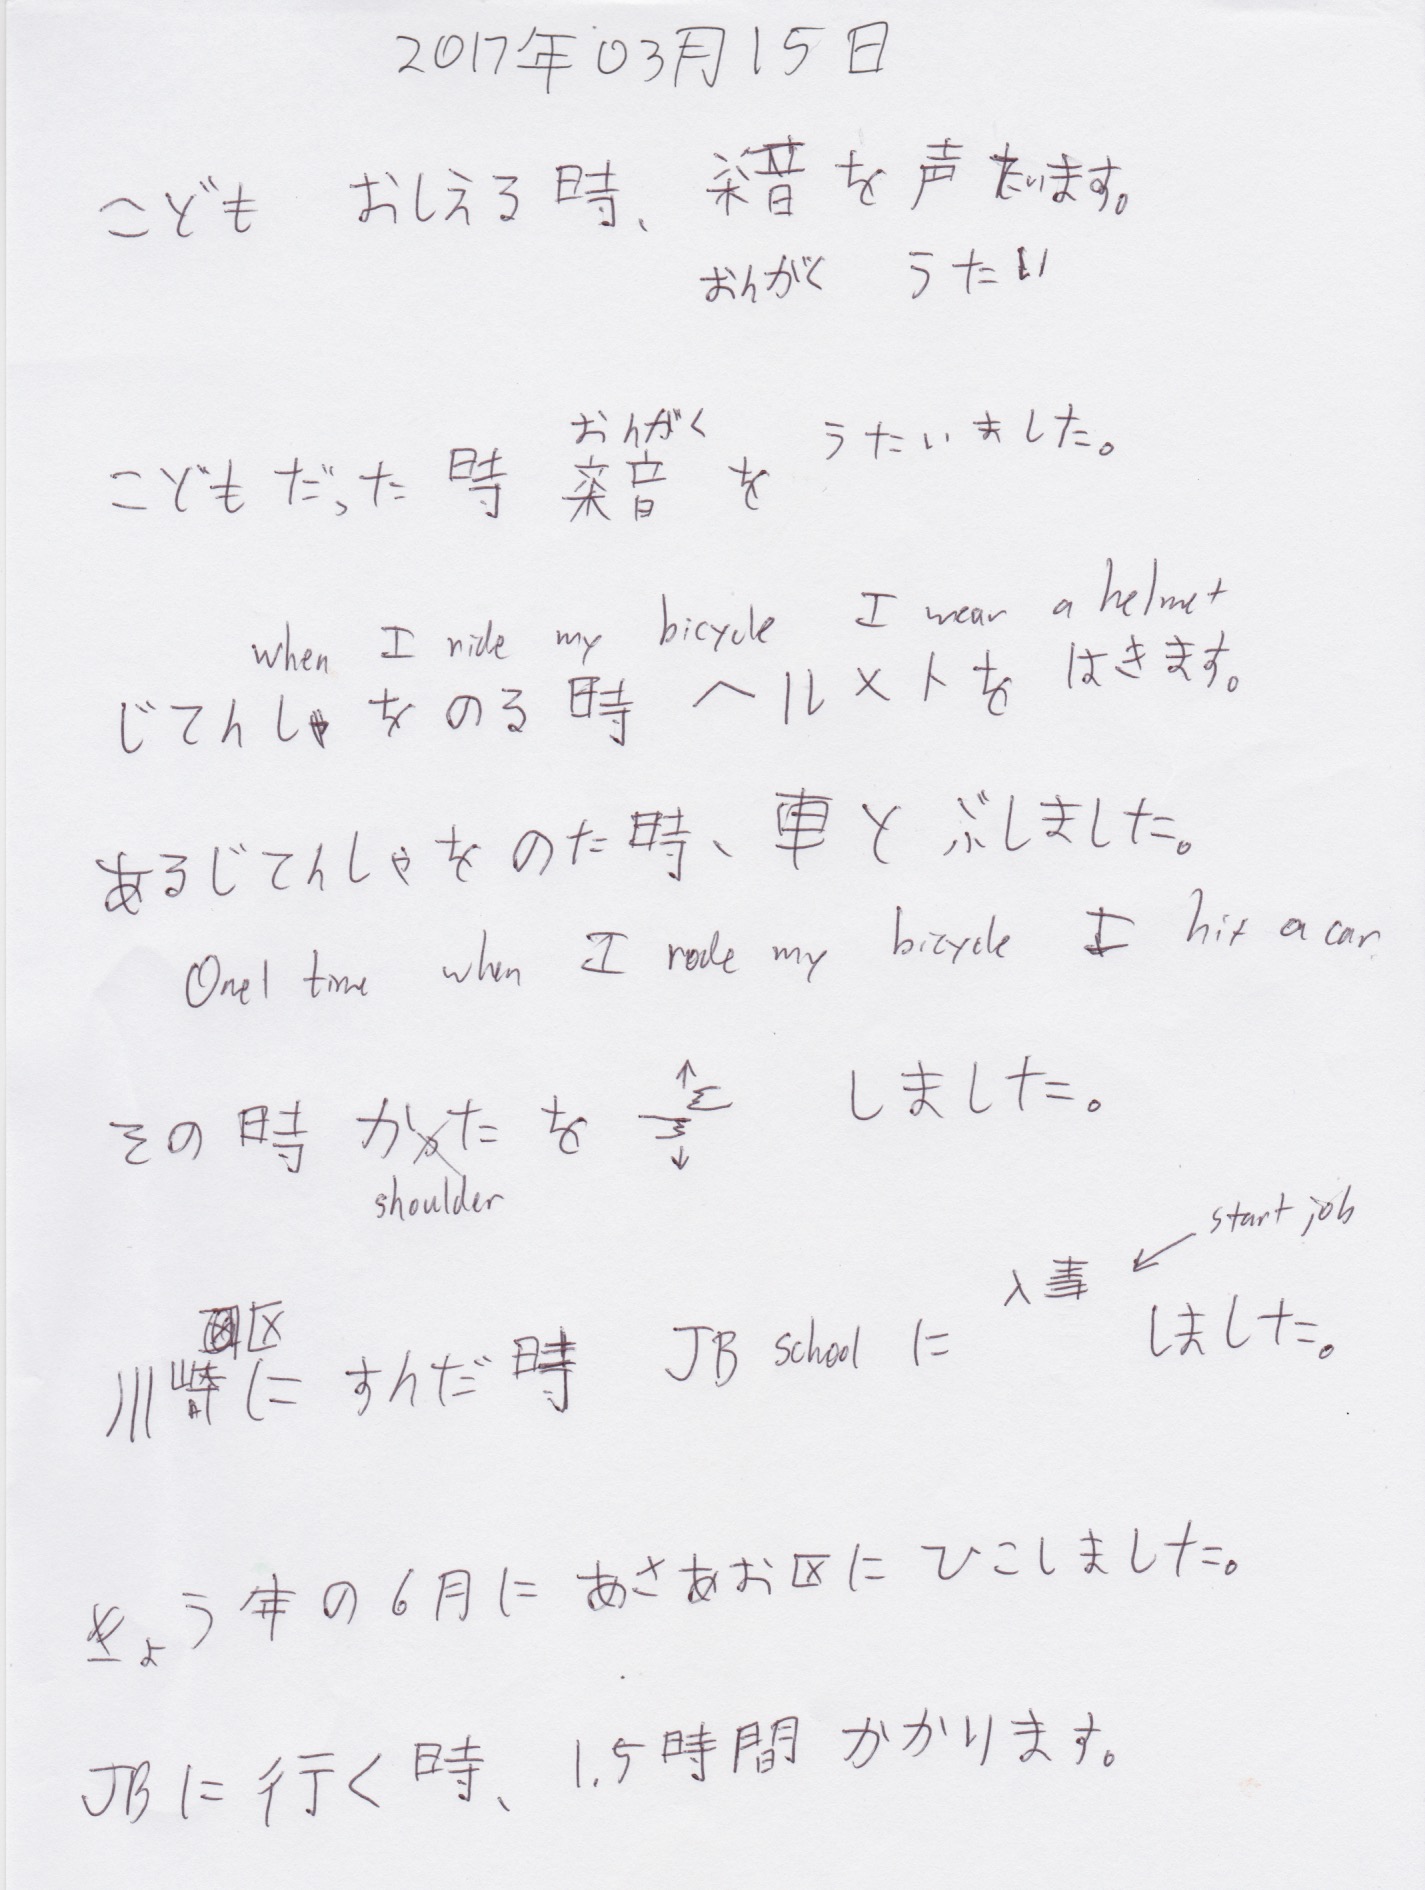 2017年03月15日
こども おしえる時、楽音を声たいます。
おんがく うたい
おんがく
こどもだった時 楽音を うたいました。
when I ride my bicycle I wear a helmet
じてんしゃをのる時 ヘルメトを はきます。
あるじてんしゃをのた時、車とぶしました。
One 1 time when I rode my bicycle I hit a car.
その時 かたを しました。
shoulder
start job
入事
区
川崎に すんだ時 JB school に しました。
きょう年の6月にあさあお区にひこしました。
JBに行く時、1.5時間かかります。